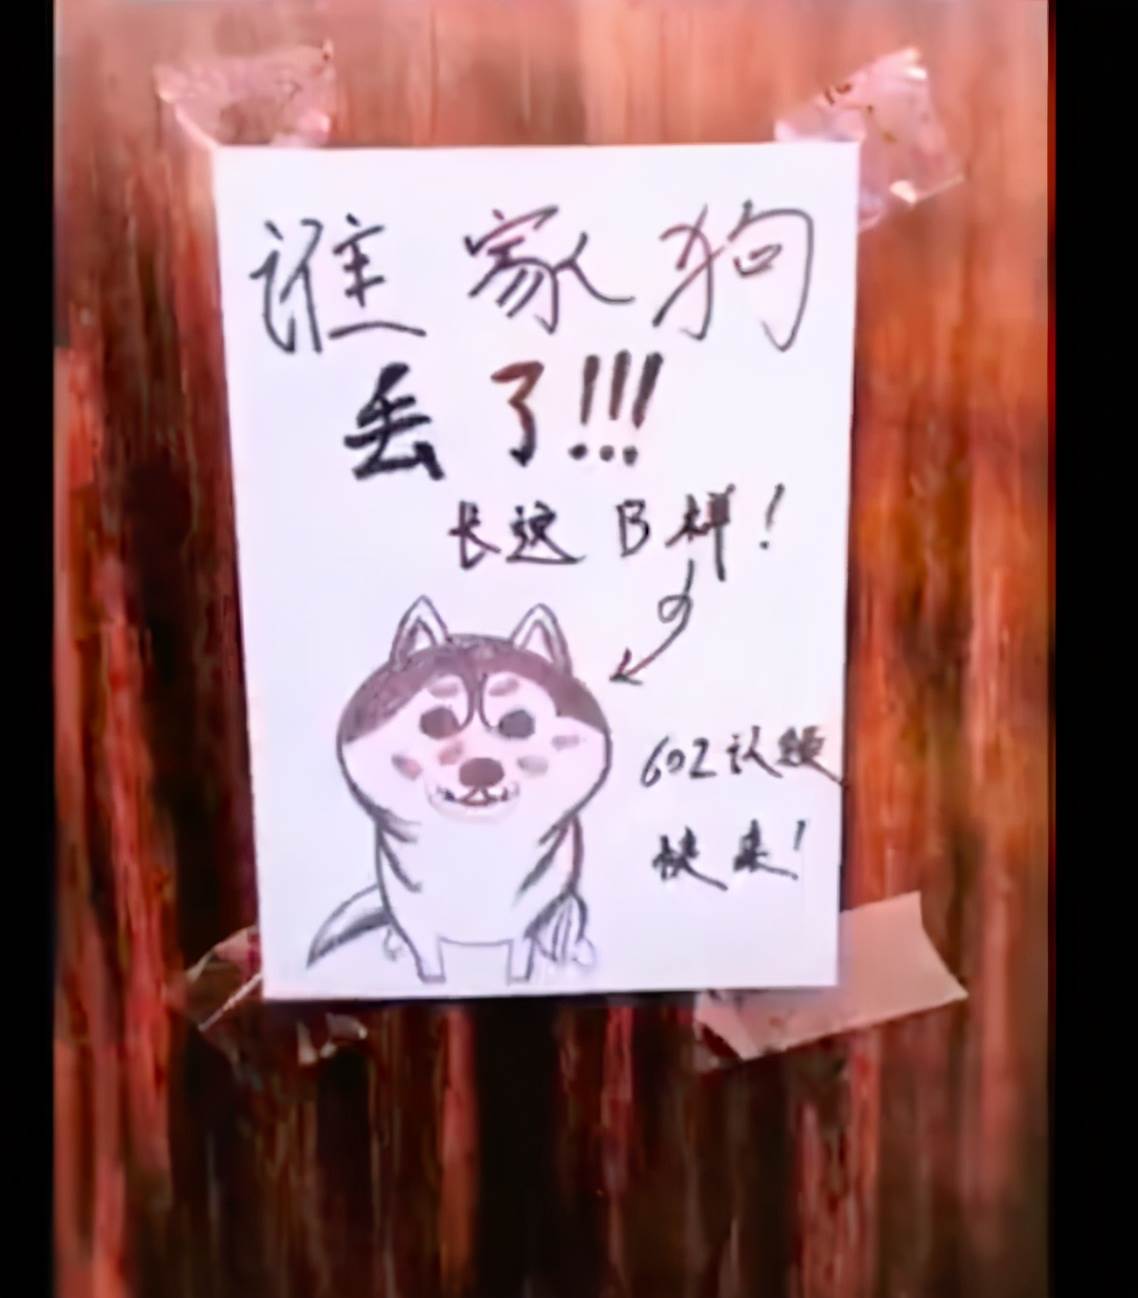 谁家狗
丢了!!!
长这B样!
602认领
快来!